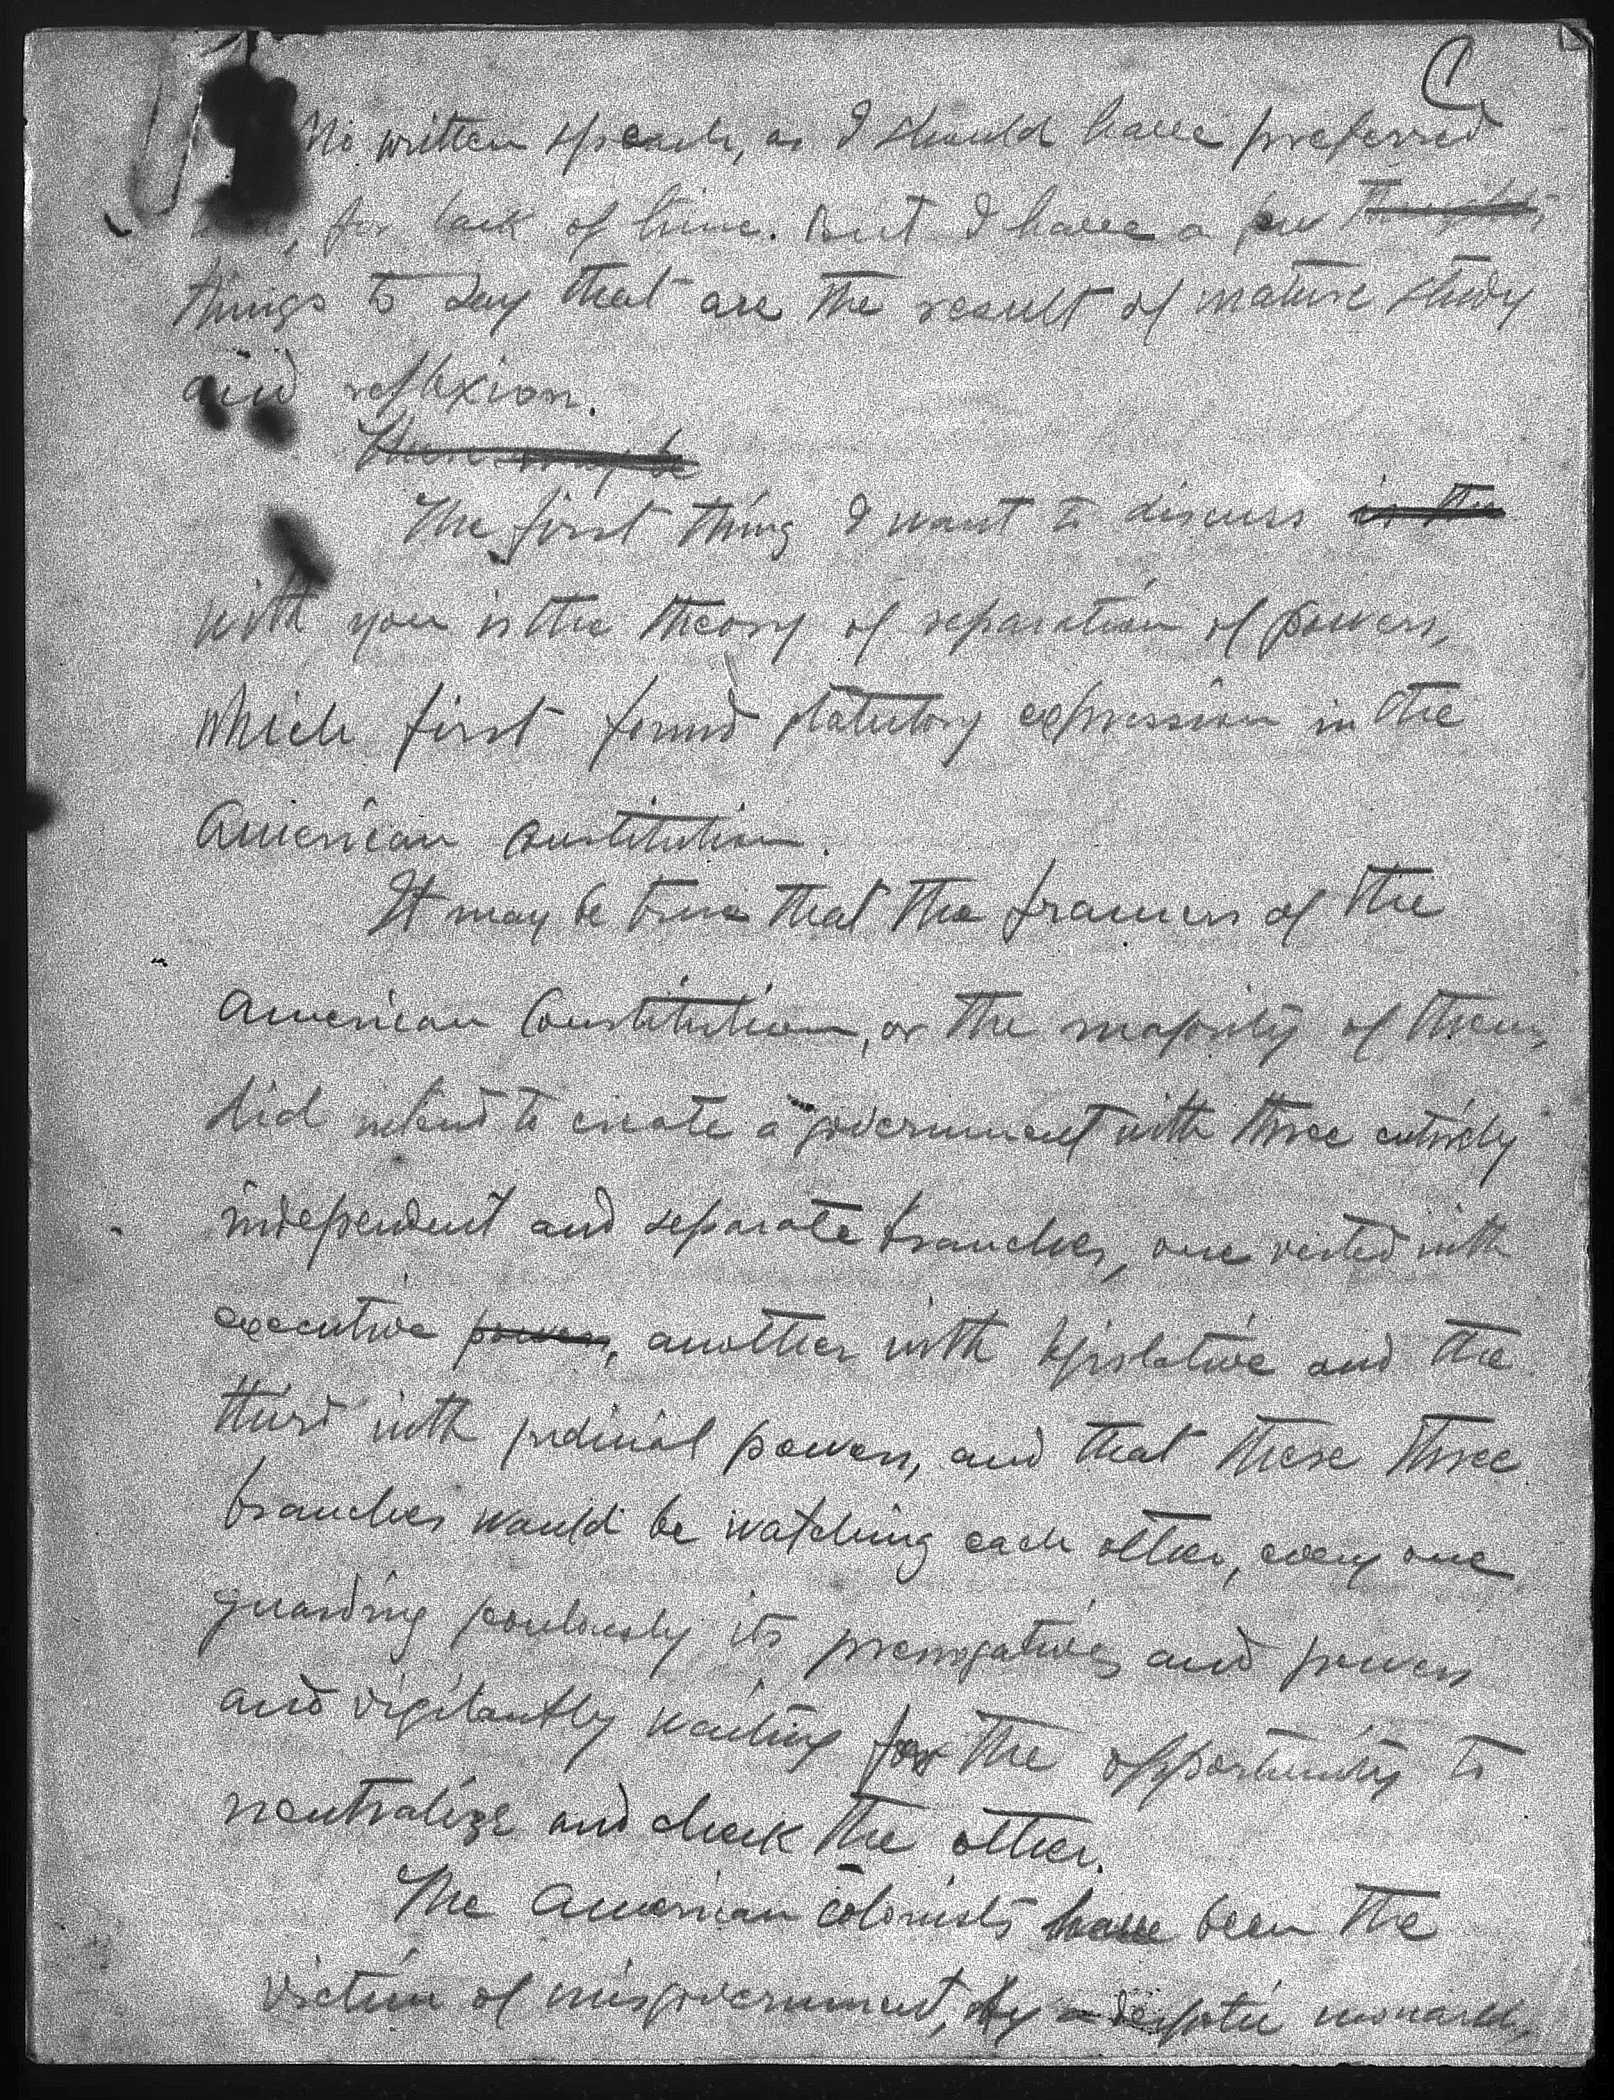 C
No written speech, as I should have preferred
, for lack of time. But I have a few thoughts
things to say that are the result of mature study
and reflexion.
There may be
The first thing I want to discuss is the
with you is the theory of separation of powers,
which first found statutory expression in the
American Constitution.
It may be true that the framers of the
American Constitution, or the majority of them,
did intend to create a government with three entirely
independent and separate branches, one vested with
executive powers, another with legislative and the
third with judicial powers, and that these three
branches would be watching each other, every one
guarding jealously its prerogatives and powers
and vigilantly waiting for the opportunity to
neutralize and check the other.
The American colonists have been the
victim of misgovernment, by a despotic monarch,